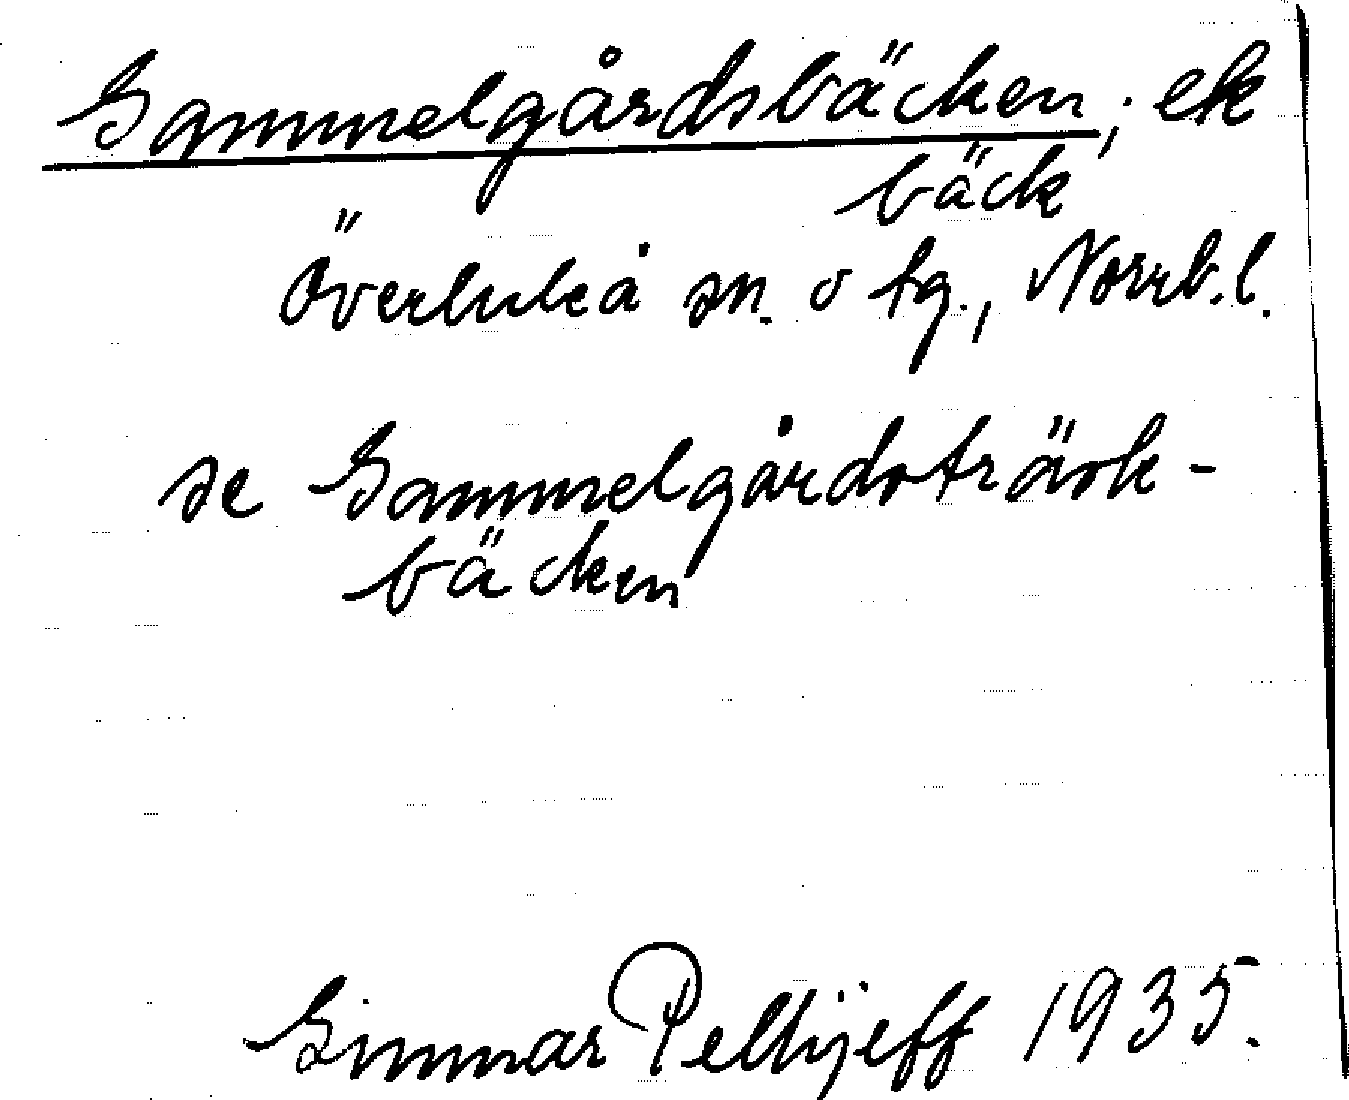 Gammelgårdsbäcken, ek
bäck
Överluleå sn. o tg., Norrb.l.
se Gammelgårdsträsk-
bäcken
Gunnar Pellijeff 1935.